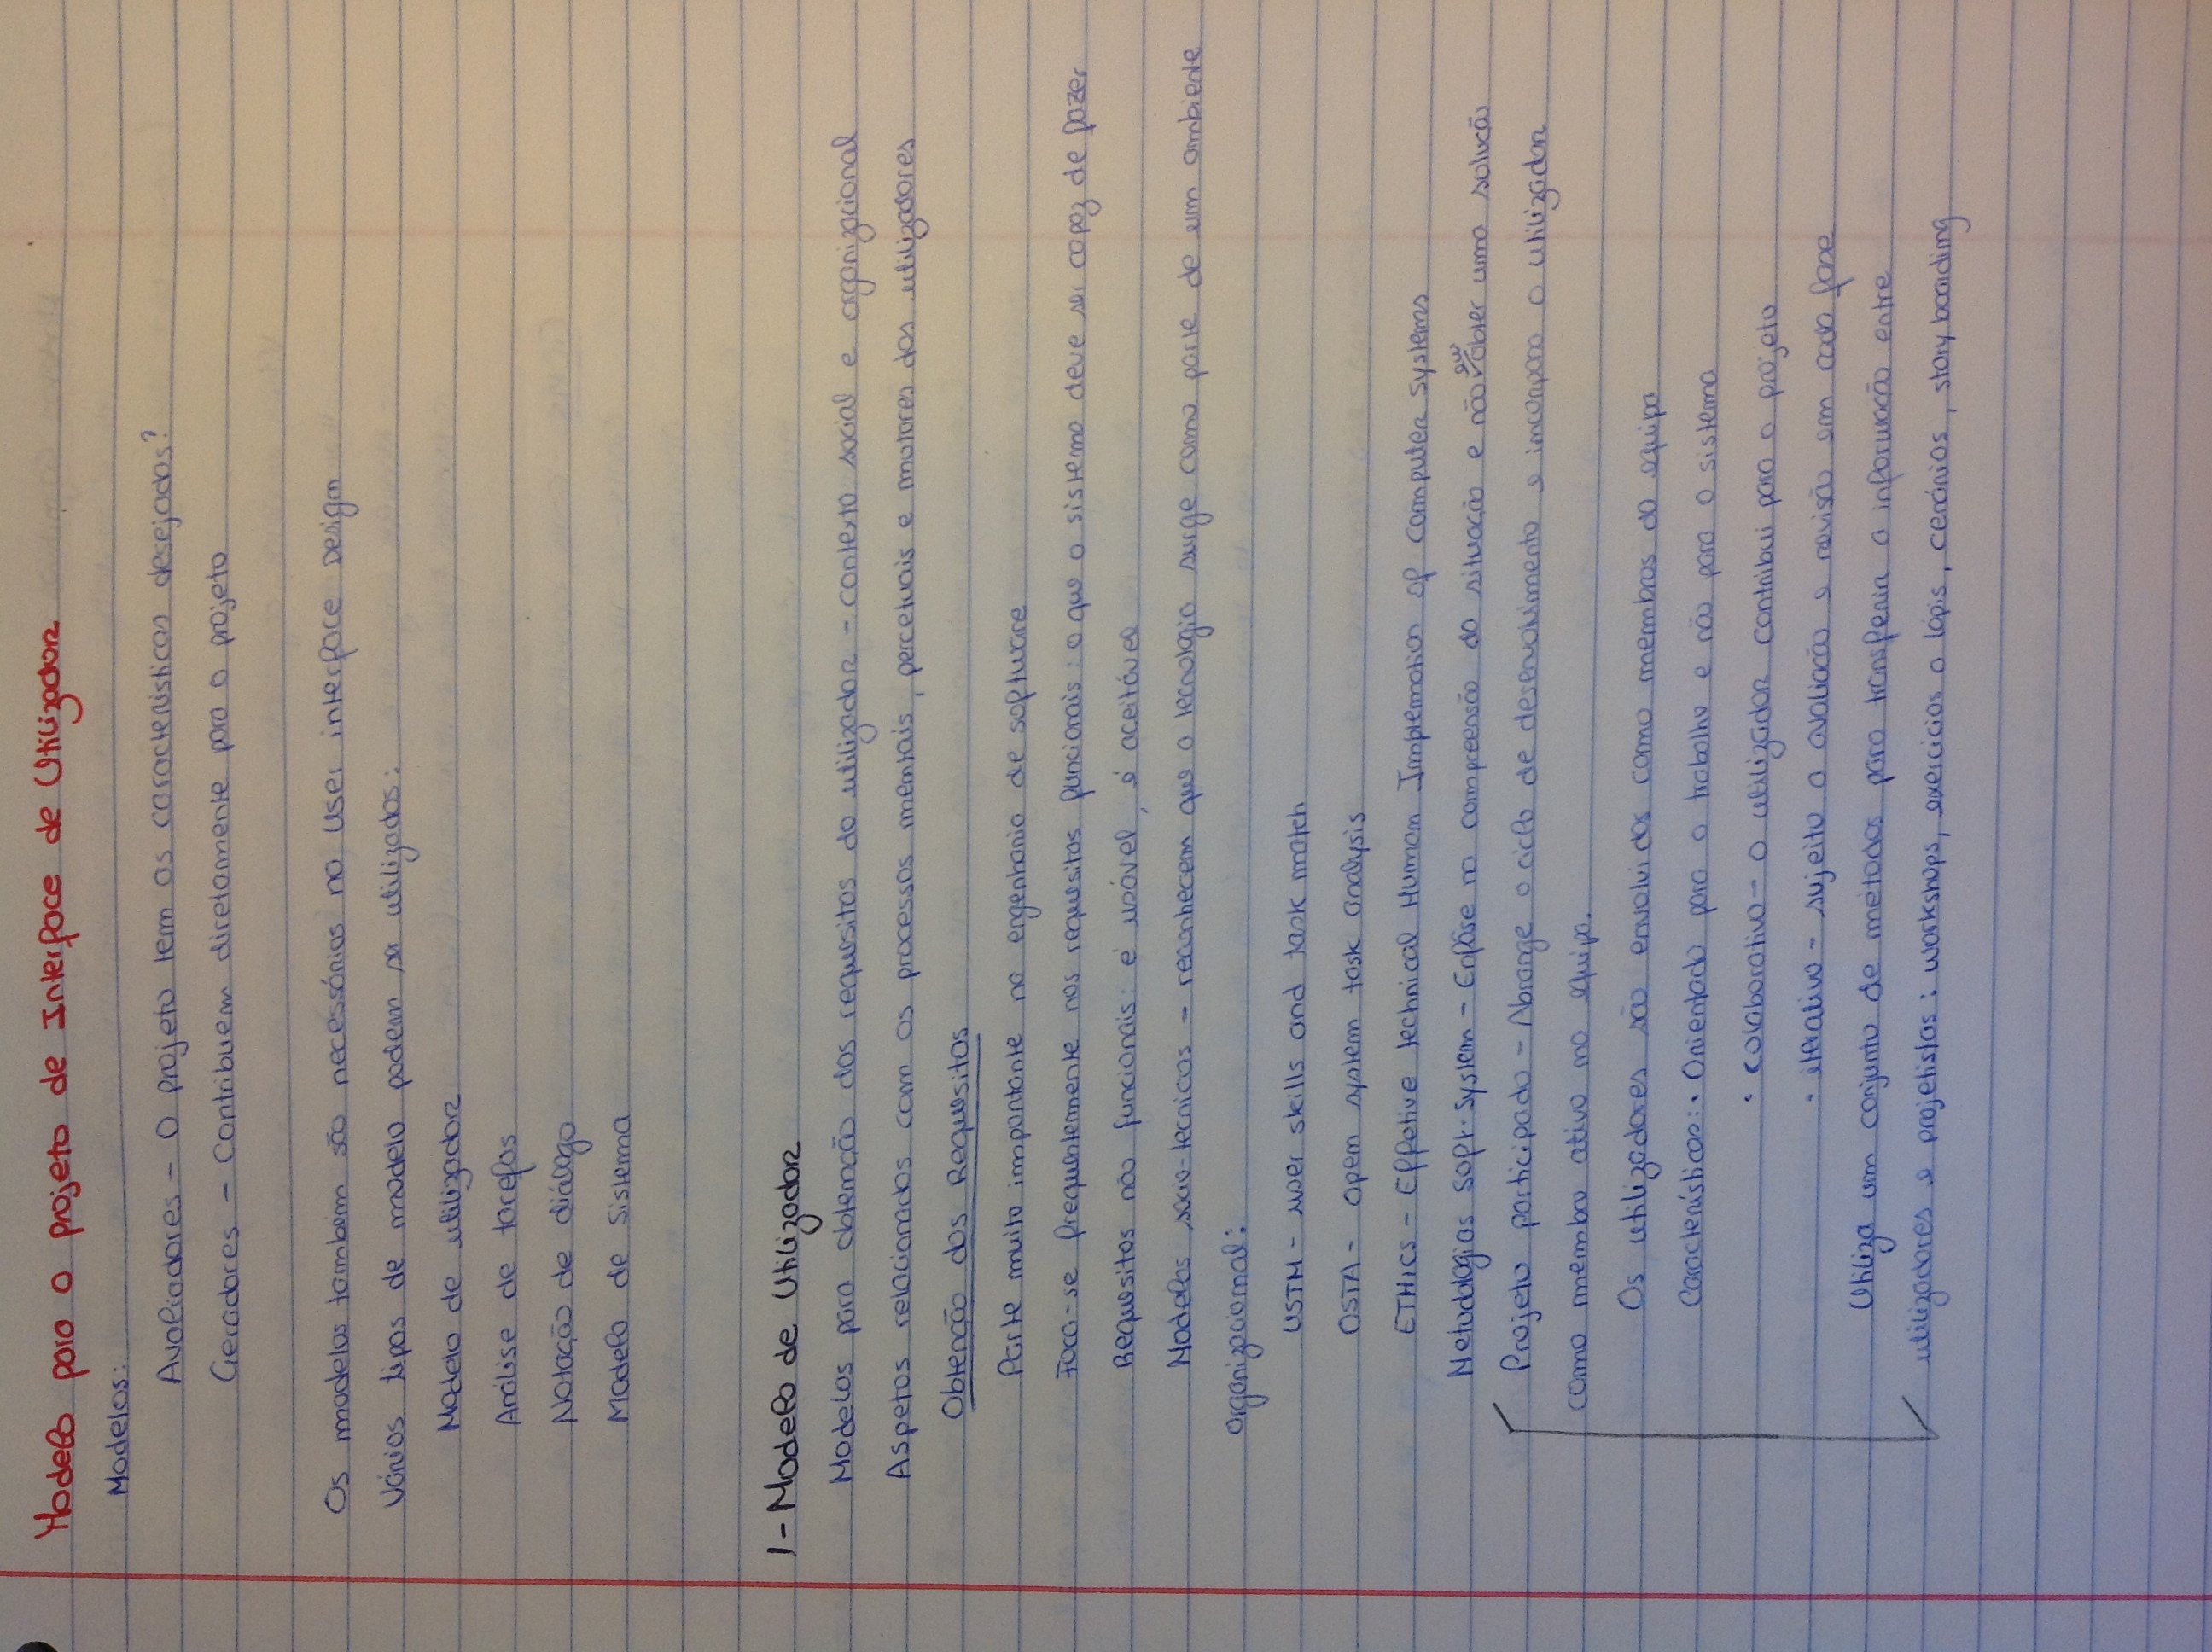 Modelo para o projeto de Interface de Utilizador
Modelos:
Avaliadores - O projeto tem as características desejadas?
Geradores - Contribuem diretamente para o projeto
Os modelos também são necessários no User interface Design
Vários tipos de modelo podem ser utilizados:
Modelo de utilizador
Análise de tarefas
Notação de diálogo
Modelo de Sistema
1- Modelo de Utilizador
Modelos para obtenção dos requesitos do utilizador - contexto social e organizacional
Aspetos relacionados com os processos mentais, percetuais e motores dos utilizadores
Obtenção dos Requesitos
Parte muito importante na engenharia de software
Foca-se frequentemente nos requesitos funcionais: o que o sistema deve ser capaz de fazer
Requesitos não funcionais: é usável, é aceitável
Modelos socio-tecnicos - reconhecem que a tecnologia surge como parte de um ambiente
organizacional:
USTM - user skills and task match
OSTA - open system task analysis
ETHICS - Effetive technical Human Implemation of Computer Systems
Metodologias Soft-System - Enfâse na compreensão da situação e não em obter uma solução
Projeto participado - Abrange o ciclo de desenvolvimento e incorpora o utilizador
como membro ativo na equipa.
Os utilizadores são envolvidos como membros da equipa
Características: • Orientado para o trabalho e não para o sistema
• colaborativo - o utilizador contribui para o projeto
• iterativo - sujeito a avaliação e revisão em cada fase
Utiliza um conjunto de métodos para transferir a informação entre
utilizadores e projetistas: workshops, exercicios a lápis, cenários, story boarding